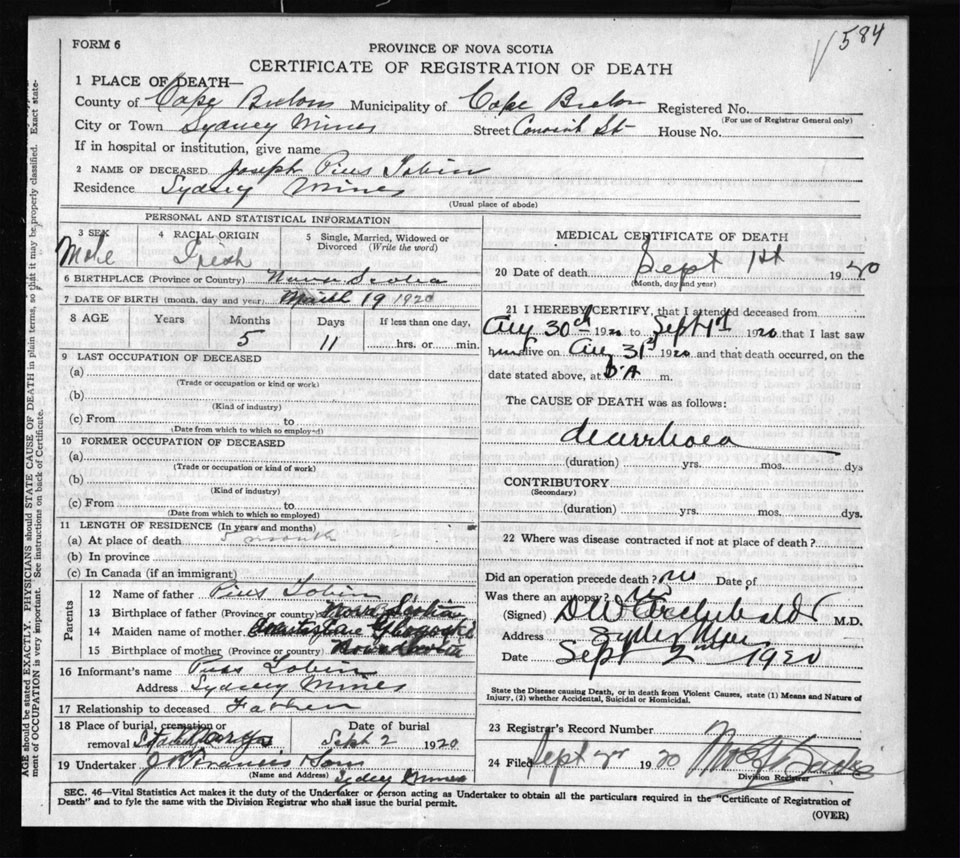 584
FORM 6
PROVINCE OF NOVA SCOTIA
CERTIFICATE OF REGISTRATION OF DEATH
1 PLACE OF DEATH—
County of Cape Breton Municipality of Cape Breton Registered No.
(For use of Registrar General only)
City or Town Sydney Mines Street Convent St House No.
If in hospital or institution, give name
2 NAME OF DECEASED Joseph Pius Tobin
Residence Sydney Mines
(Usual place of abode)
PERSONAL AND STATISTICAL INFORMATION
3 SEX 4 RACIAL ORIGIN 5 Single, Married, Widowed or Divorced (Write the word)
Male Irish
6 BIRTHPLACE (Province or Country) Nova Scotia
7 DATE OF BIRTH (month, day and year) March 19 1920
8 AGE Years Months Days If less than one day,
5 11 hrs. or min.
9 LAST OCCUPATION OF DECEASED
(a)
(Trade or occupation or kind or work)
(b)
(Kind of industry)
(c) From to
(Date from which to which so employed)
10 FORMER OCCUPATION OF DECEASED
(a)
(Trade or occupation or kind of work)
(b)
(Kind of industry)
(c) From to
(Date from which to which so employed)
11 LENGTH OF RESIDENCE (In years and months)
(a) At place of death 5 months
(b) In province
(c) In Canada (if an immigrant)
Parents
12 Name of father Pius Tobin
13 Birthplace of father (Province or country) Nova Scotian
14 Maiden name of mother
15 Birthplace of mother (Province or country) Nova Scotia
16 Informant's name Pius Tobin
Address Sydney Mines
17 Relationship to deceased Father
18 Place of burial, cremation or Date of burial
removal Sept 2 1920
19 Undertaker Francis & Sons
(Name and Address) Sydney Mines
MEDICAL CERTIFICATE OF DEATH
20 Date of death Sept 1st 1920
(Month, day and year)
21 I HEREBY CERTIFY, that I attended deceased from
Aug 30th 1920 to Sept 1st 1920 that I last saw
him alive on Aug 31st 1920 and that death occurred, on the
date stated above, at m.
The CAUSE OF DEATH was as follows:
diarrhoea
(duration) yrs. mos. dys
CONTRIBUTORY
(Secondary)
(duration) yrs. mos. dys.
22 Where was disease contracted if not at place of death?
Did an operation precede death? no Date of
Was there an autopsy? no
(Signed) D W Archibald M.D.
Address Sydney Mines
Date Sept 2nd 1920
State the Disease causing Death, or in death from Violent Causes, state (1) Means and Nature of
Injury, (2) whether Accidental, Suicidal or Homicidal.
23 Registrar's Record Number
24 Filed Sept 2nd 1920
Division Registrar
SEC. 46—Vital Statistics Act makes it the duty of the Undertaker or person acting as Undertaker to obtain all the particulars required in the "Certificate of Registration of
Death" and to fyle the same with the Division Registrar who shall issue the burial permit.
(OVER)
AGE should be stated EXACTLY. PHYSICIANS should STATE CAUSE OF DEATH in plain terms, so that it may be properly classified. Exact state-
ment of OCCUPATION is very important. See instructions on back of Certificate.